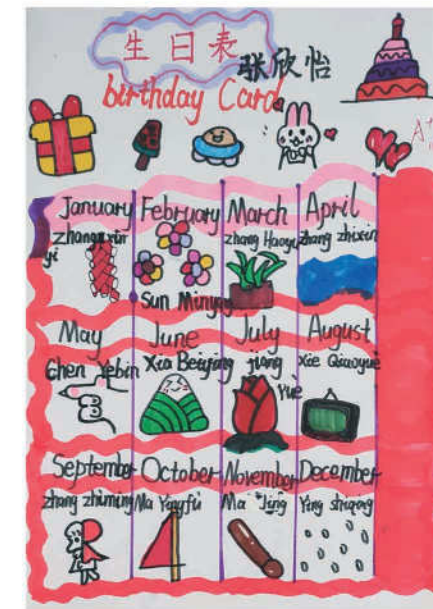 生日表
张欣怡
birthday Card
January February March April
Zhang xin yi
Zhang Haoyu
zhang zhixin
Sun Minyang
May June July August
Chen Yebin
Xia Beiyang
jiang Yue
Xie Qiaoyue
September October November December
zhang zhiming
Ma Yingfu
Ma Jing
Ying shiqing